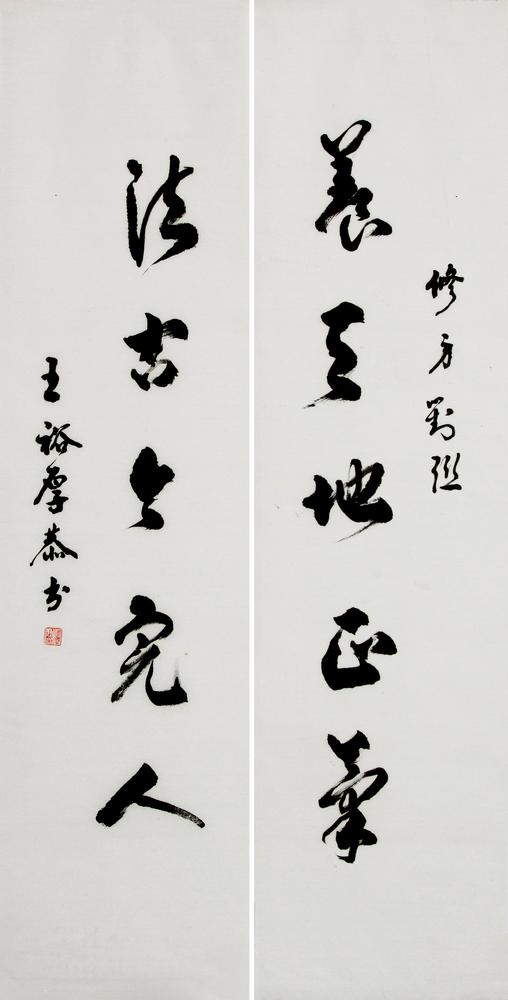 修方對联
養天地正氣
法古今完人
王裕厚恭书